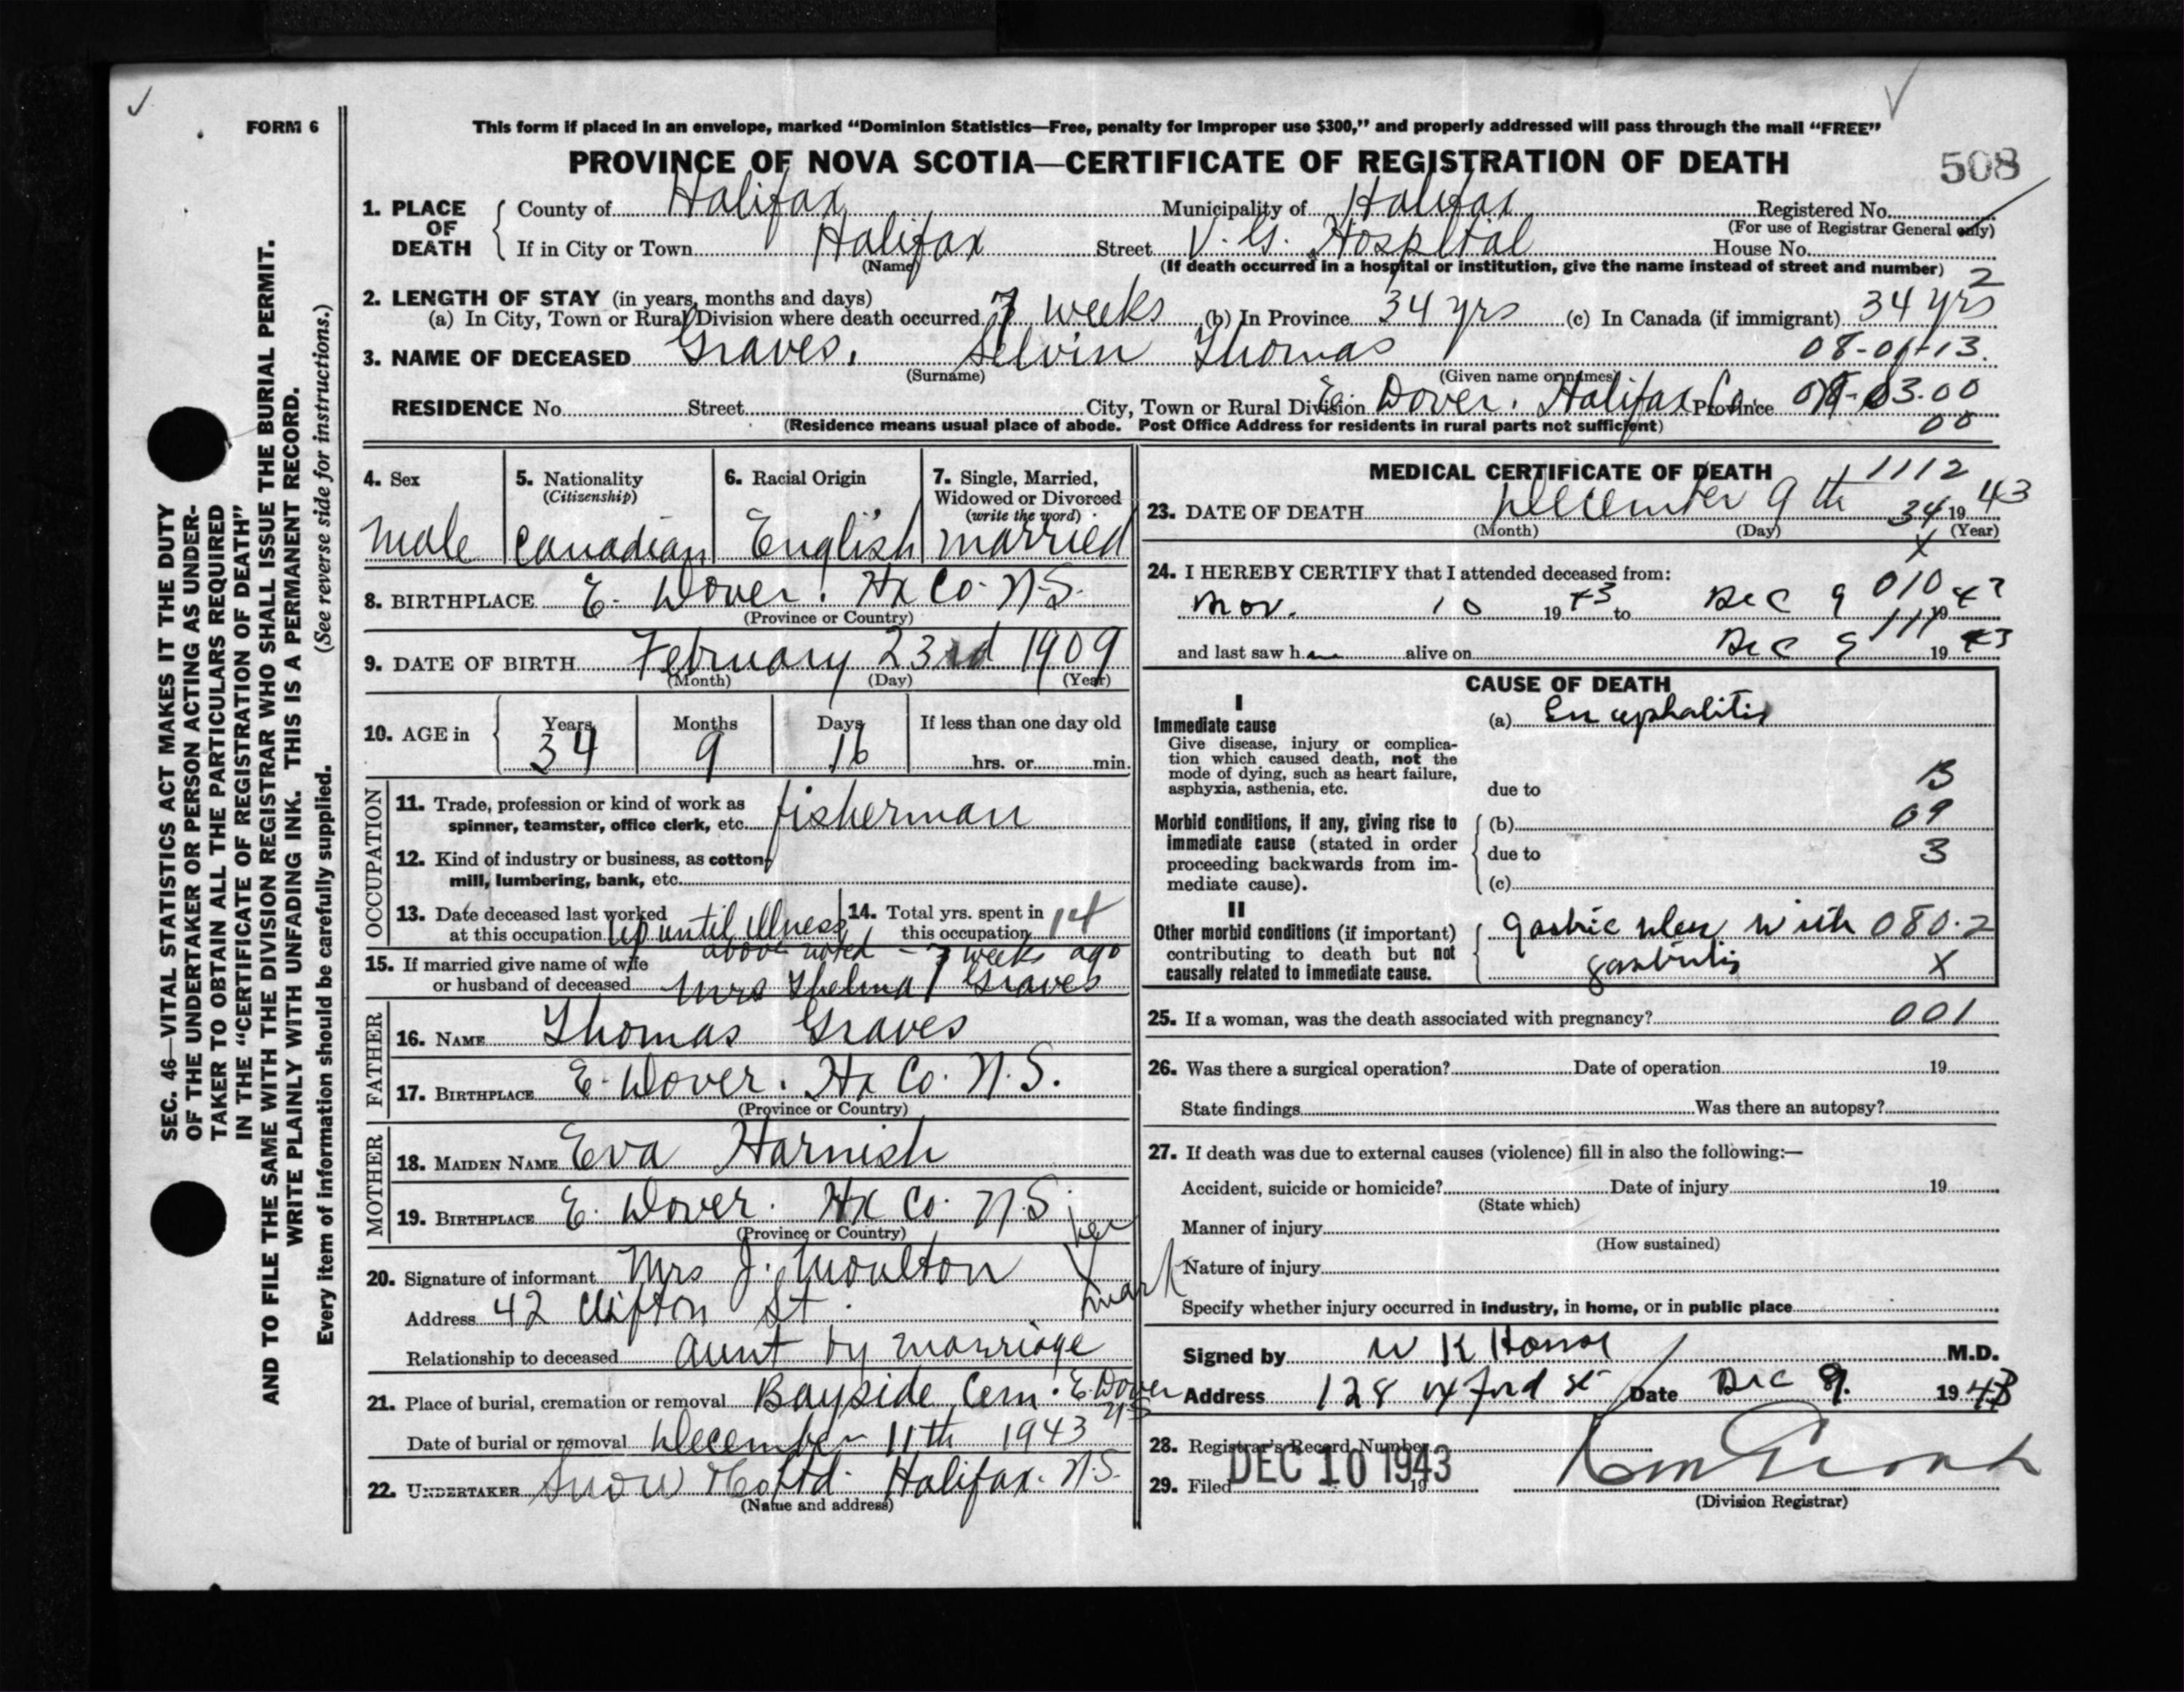 FORM 6
This form if placed in an envelope, marked “Dominion Statistics—Free, penalty for improper use $300,” and properly addressed will pass through the mail “FREE”
PROVINCE OF NOVA SCOTIA—CERTIFICATE OF REGISTRATION OF DEATH
508
1. PLACE OF DEATH County of Halifax Municipality of Halifax Registered No.
(For use of Registrar General only)
If in City or Town Halifax Street V. G. Hospital House No.
(Name) (If death occurred in a hospital or institution, give the name instead of street and number) 2
2. LENGTH OF STAY (in years, months and days)
(a) In City, Town or Rural Division where death occurred 7 weeks (b) In Province 34 yrs (c) In Canada (if immigrant) 34 yrs
3. NAME OF DECEASED Graves. Selvin Thomas 08-01-13.
(Surname) (Given name or names)
RESIDENCE No. Street City, Town or Rural Division E. Dover. Halifax Co. Province 03.00
(Residence means usual place of abode. Post Office Address for residents in rural parts not sufficient) 00
4. Sex
male
5. Nationality
(Citizenship)
Canadian
6. Racial Origin
English
7. Single, Married,
Widowed or Divorced
(write the word)
married
8. BIRTHPLACE E. Dover. Hx Co. N.S.
(Province or Country)
9. DATE OF BIRTH February 23rd 1909
(Month) (Day) (Year)
10. AGE in Years Months Days If less than one day old
34 9 16 hrs. or min.
OCCUPATION
11. Trade, profession or kind of work as
spinner, teamster, office clerk, etc. fisherman
12. Kind of industry or business, as cotton-
mill, lumbering, bank, etc.
13. Date deceased last worked
at this occupation Up until illness
above noted - 7 weeks ago
14. Total yrs. spent in
this occupation 14
15. If married give name of wife
or husband of deceased Mrs Thelma Graves
FATHER
16. NAME Thomas Graves
17. BIRTHPLACE E. Dover. Hx Co. N.S.
(Province or Country)
MOTHER
18. MAIDEN NAME Eva Harnish
19. BIRTHPLACE E. Dover. Hx Co. N.S.
(Province or Country)
20. Signature of informant Mrs J. Moulton her X mark
Address 42 Clifton St.
Relationship to deceased aunt by marriage
21. Place of burial, cremation or removal Bayside Cem. E. Dover NS
Date of burial or removal December 11th 1943
22. UNDERTAKER Snow & Co Ltd. Halifax. N.S.
(Name and address)
MEDICAL CERTIFICATE OF DEATH 1112
23. DATE OF DEATH December 9th 34 1943
(Month) (Day) (Year)
X
24. I HEREBY CERTIFY that I attended deceased from: 010
Nov. 10 1943 to Dec 9 1943
111
and last saw h alive on Dec 9 1943
CAUSE OF DEATH
I
Immediate cause
Give disease, injury or complica-
tion which caused death, not the
mode of dying, such as heart failure,
asphyxia, asthenia, etc.
(a) Encephalitis
due to B
Morbid conditions, if any, giving rise to
immediate cause (stated in order
proceeding backwards from im-
mediate cause).
(b) 09
due to 3
(c)
II
Other morbid conditions (if important)
contributing to death but not
causally related to immediate cause.
gastric ulcer with 080.2
gastritis X
25. If a woman, was the death associated with pregnancy? 001
26. Was there a surgical operation? Date of operation 19
State findings Was there an autopsy?
27. If death was due to external causes (violence) fill in also the following:—
Accident, suicide or homicide? Date of injury 19
(State which)
Manner of injury
(How sustained)
Nature of injury
Specify whether injury occurred in industry, in home, or in public place
Signed by W K M.D.
Address 128 Oxford St Date Dec 9. 1943
28. Registrar's Record Number
29. Filed DEC 10 1943 19
(Division Registrar)
SEC. 46—VITAL STATISTICS ACT MAKES IT THE DUTY
OF THE UNDERTAKER OR PERSON ACTING AS UNDER-
TAKER TO OBTAIN ALL THE PARTICULARS REQUIRED
IN THE “CERTIFICATE OF REGISTRATION OF DEATH”
AND TO FILE THE SAME WITH THE DIVISION REGISTRAR WHO SHALL ISSUE THE BURIAL PERMIT.
WRITE PLAINLY WITH UNFADING INK. THIS IS A PERMANENT RECORD.
Every item of information should be carefully supplied. (See reverse side for instructions.)